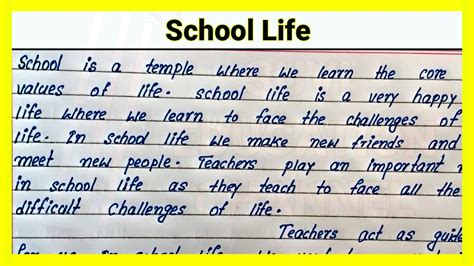 School Life
School is a temple where we learn the core
values of life. school life is a very happy
life where we learn to face the challenges of
life. In school life we make new friends and
meet new people. Teachers play an important
in school life as they teach to face all the
difficult challenges of life.
Teachers act as guide